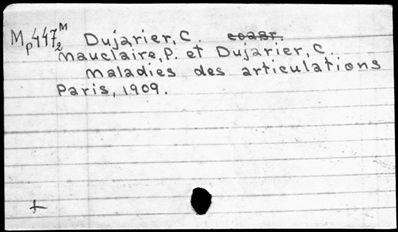 Mp447M2 Dujarier, C. coaat.
Mauclaire, P. et Dujarier, C.
Maladies des articulations
Paris, 1909.